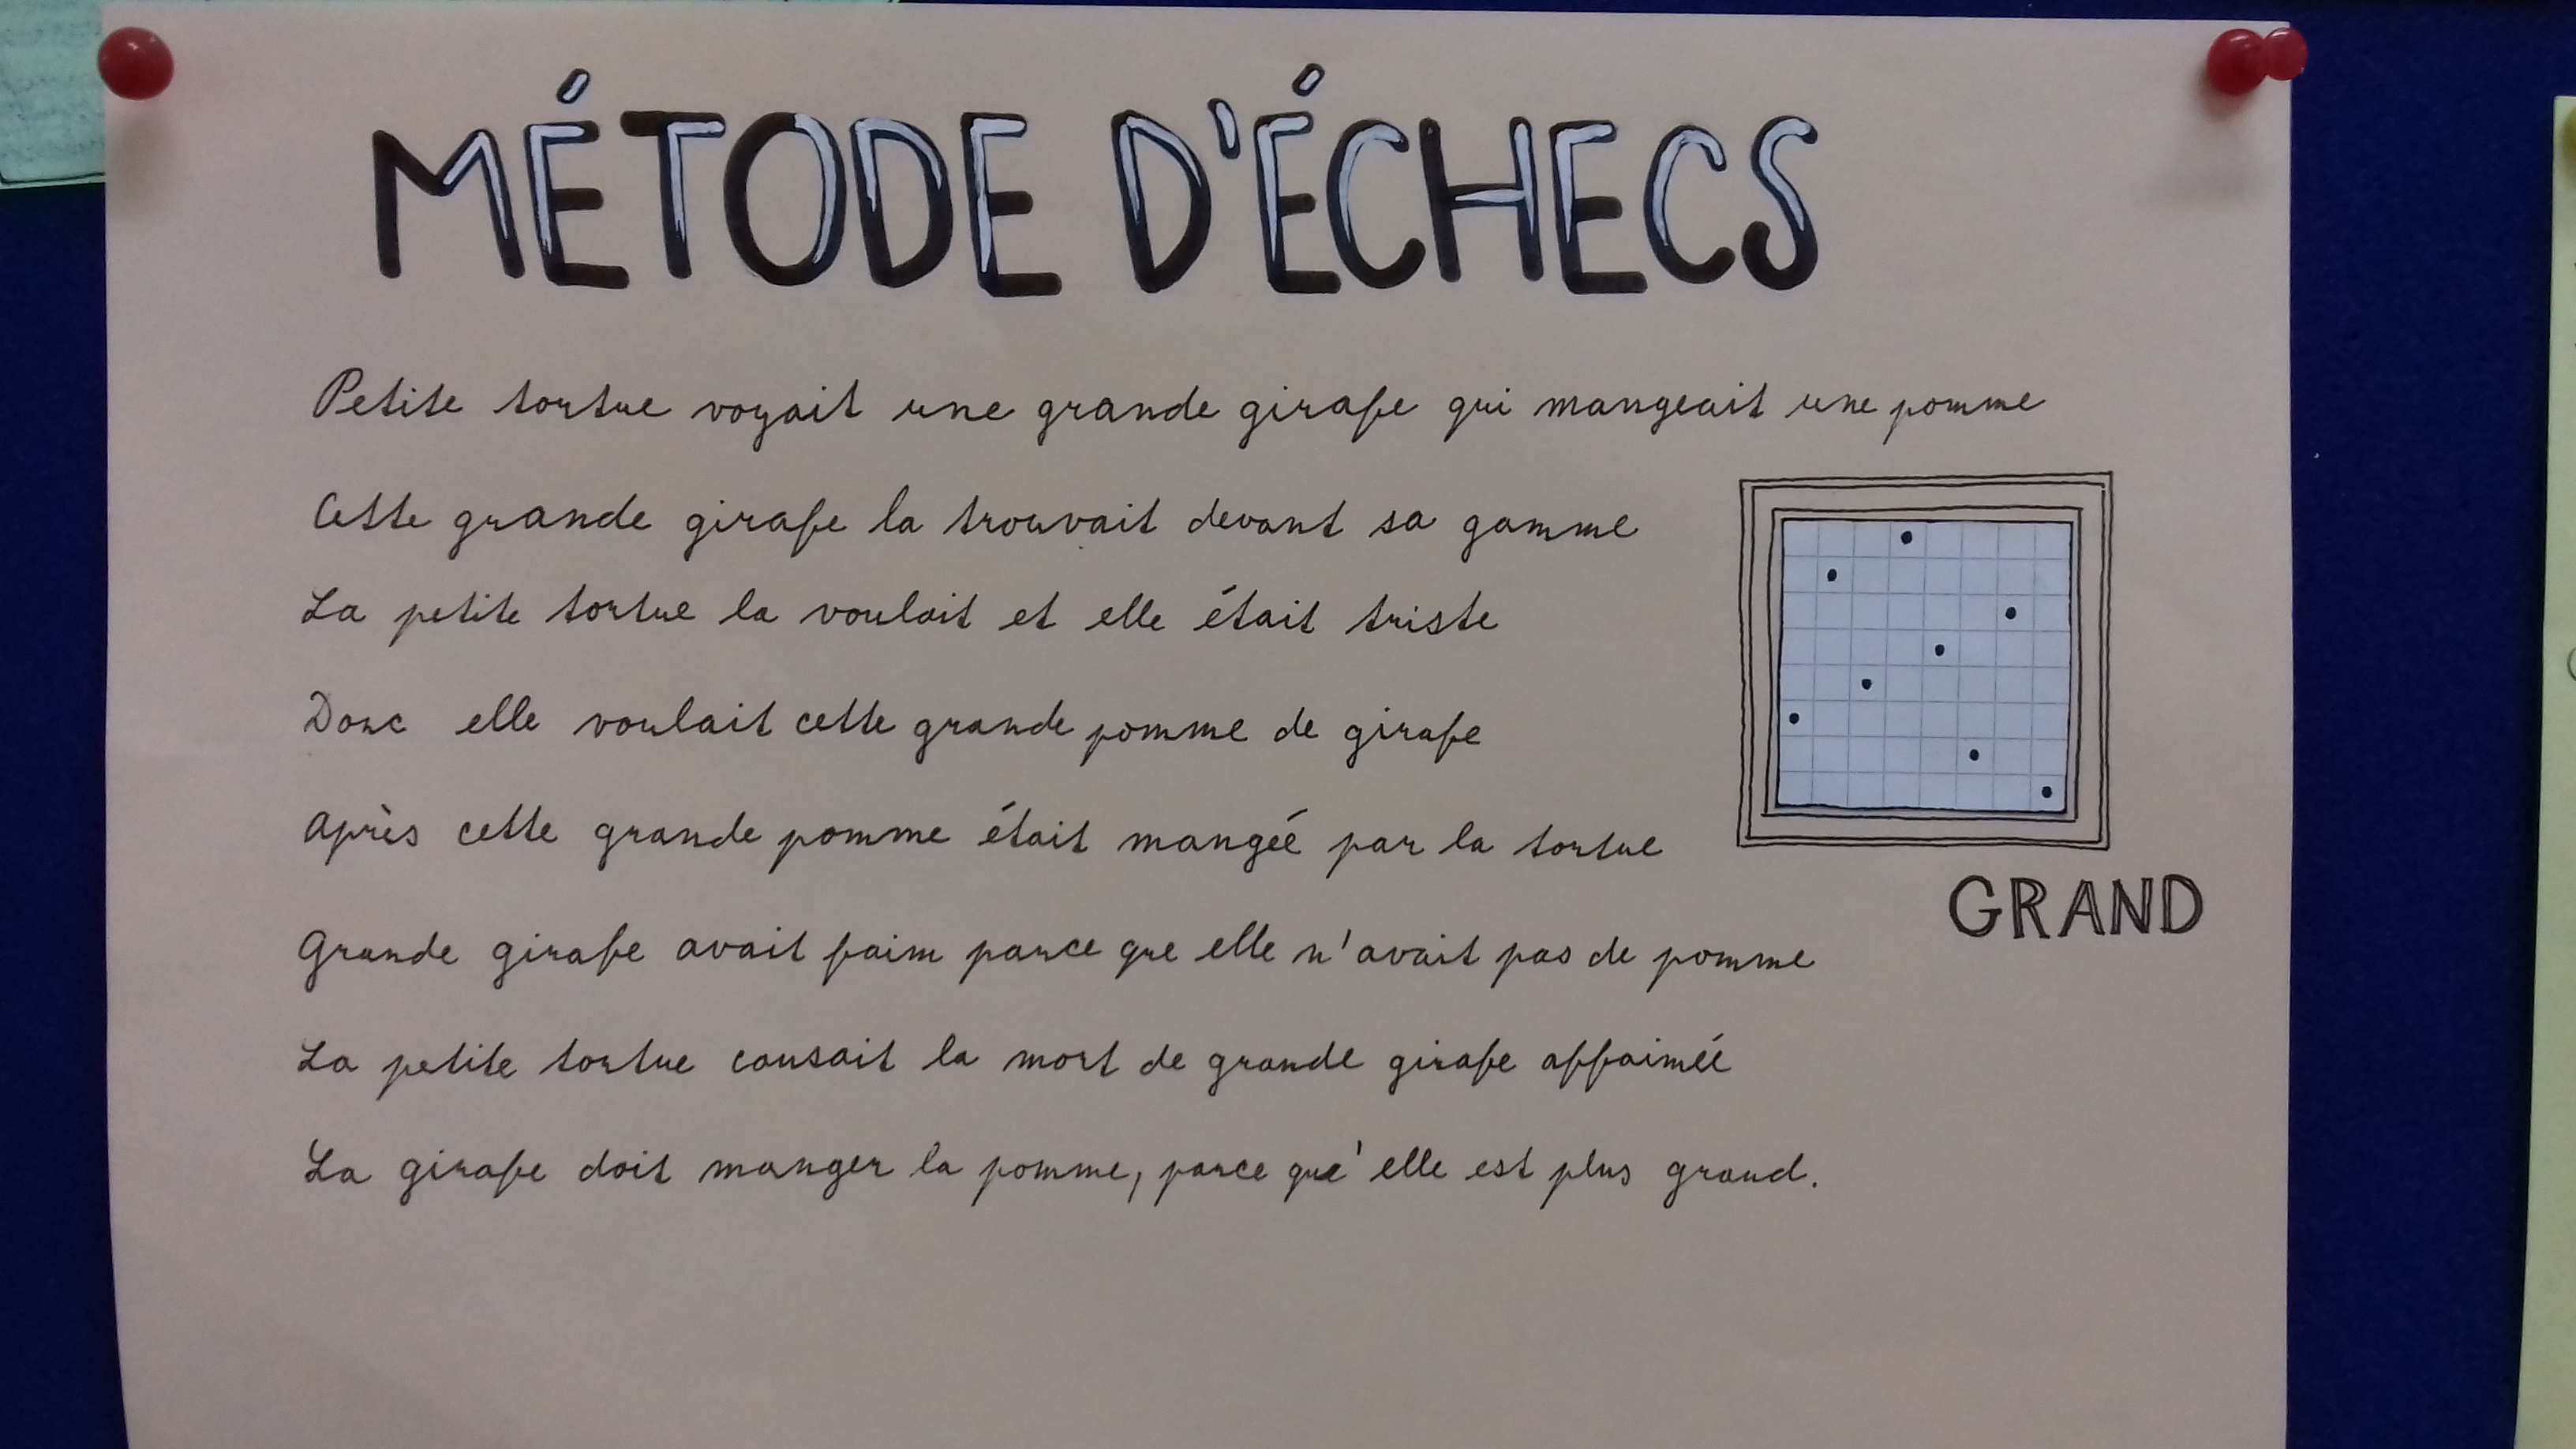 MÉTODE D'ÉCHECS
Petite tortue voyait une grande girafe qui mangeait une pomme
Cette grande girafe la trouvait devant sa gamme
La petite tortue la voulait et elle était triste
Donc elle voulait cette grande pomme de girafe
Après cette grande pomme était mangée par la tortue
Grande girafe avait faim parce que elle n'avait pas de pomme
La petite tortue causait la mort de grande girafe affaimée
La girafe doit manger la pomme, parce que' elle est plus grand.
GRAND